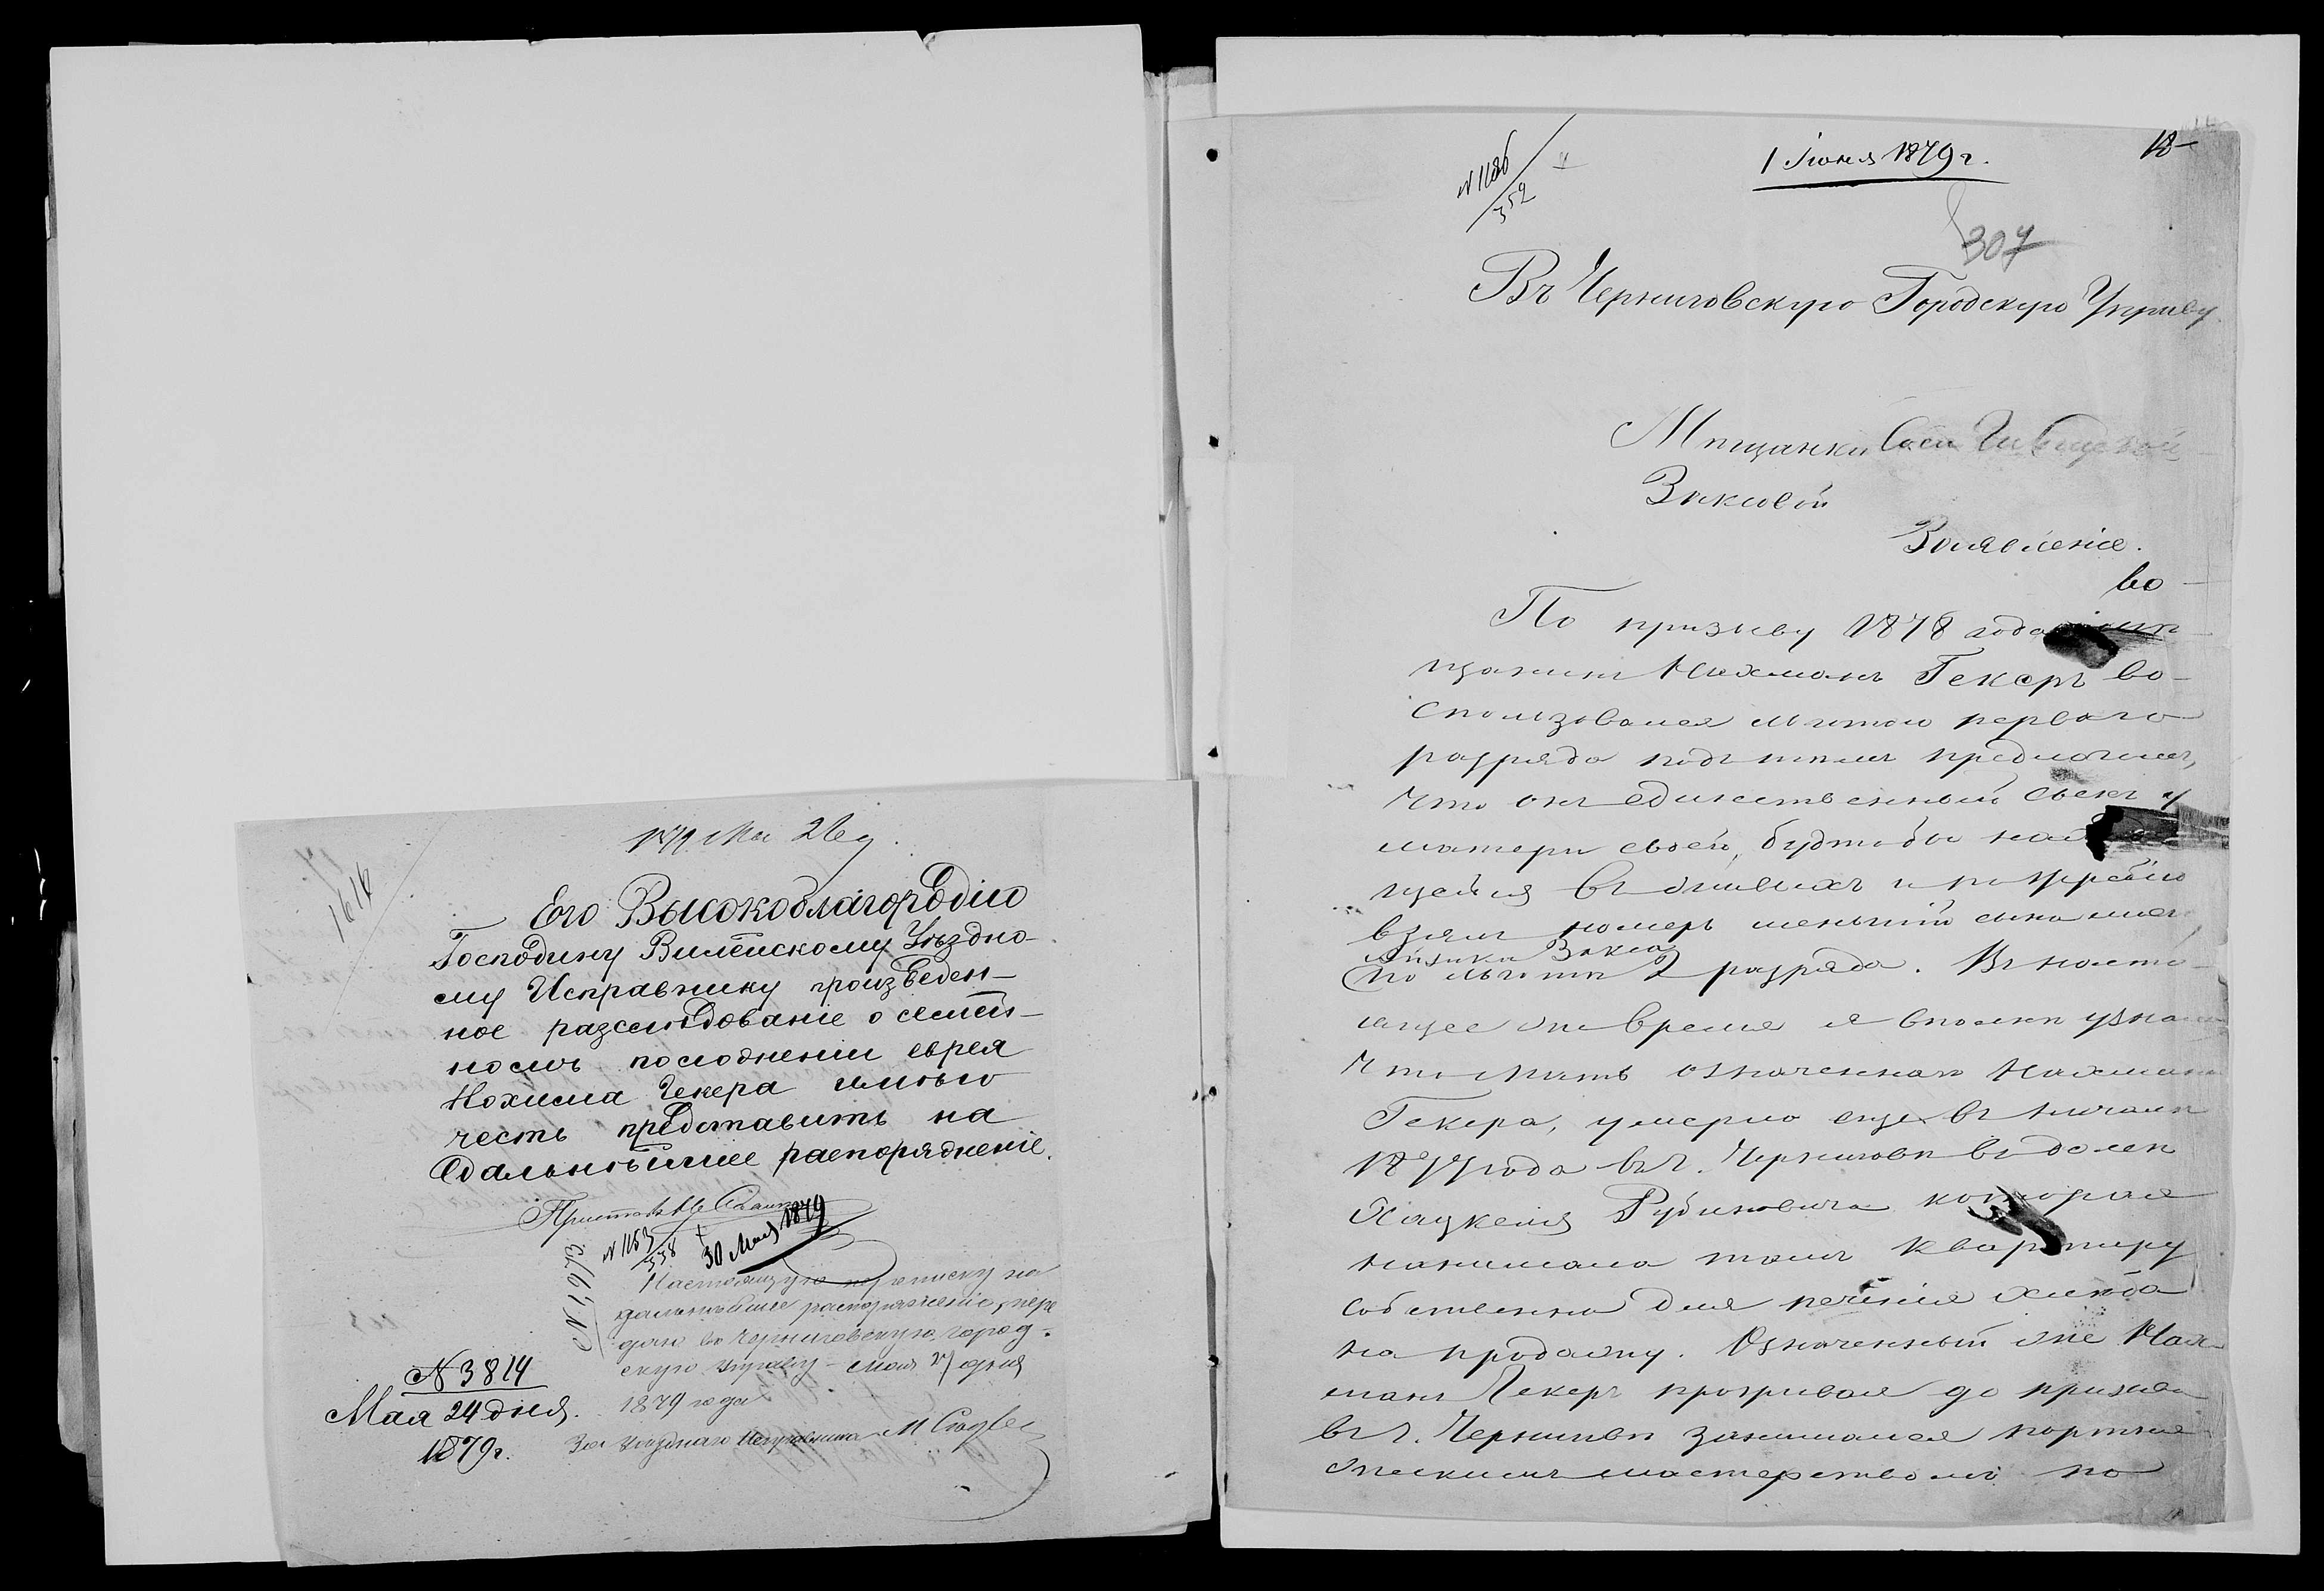 1879 Мая 26 д.
1614
Его Высокоблагородію
Господину Вилейскому Уѣздно-
му Исправнику произведен-
ное разслѣдованіе о семей-
номъ положеніи еврея
Нохима Гекера имѣю
честь представить на
дальнѣйшее распоряженіе.
Приставъ
N 1153
338
30 Мая 1879
N 1973
Настоящую переписку на
дальнѣйшее распоряженіе, пере
даю въ Черниговскую город-
скую управу - мая 27 дня
1879 года
За Уѣзднаго Исправника М
N 3814
Мая 24 дня.
1879 г.
18
1 Іюня 1879 г.
N 1186
352
307
Въ Черниговскую Городскую Управу.
Мѣщанки Соси
Заксовой
Заявленіе.
во-
По призыву 1878 года
щанинъ Нахманъ Гекеръ во-
спользовался льготою перваго
разряда подъ тѣмъ предлогомъ,
что онъ единственный сынъ у
матери своей, будтобы
щейся въ живыхъ и по жребію
взялъ номеръ меньшій сына моего
Айзика Закса
по льготѣ 2 разряда. Въ насто-
ящее же время я вполнѣ узнала
что мать означеннаго Нахмана
Гекера, умерла еще въ началѣ
1877 года въ г. Черниговѣ въ домѣ
Хацкеля Рубиновича которая
нанимала тамъ квартиру
собственно для печенія хлѣба
на продажу. Означенный же Нах-
манъ Гекеръ проживая до призыва
въ г. Черниговѣ занимался портня-
жескимъ мастерствомъ по